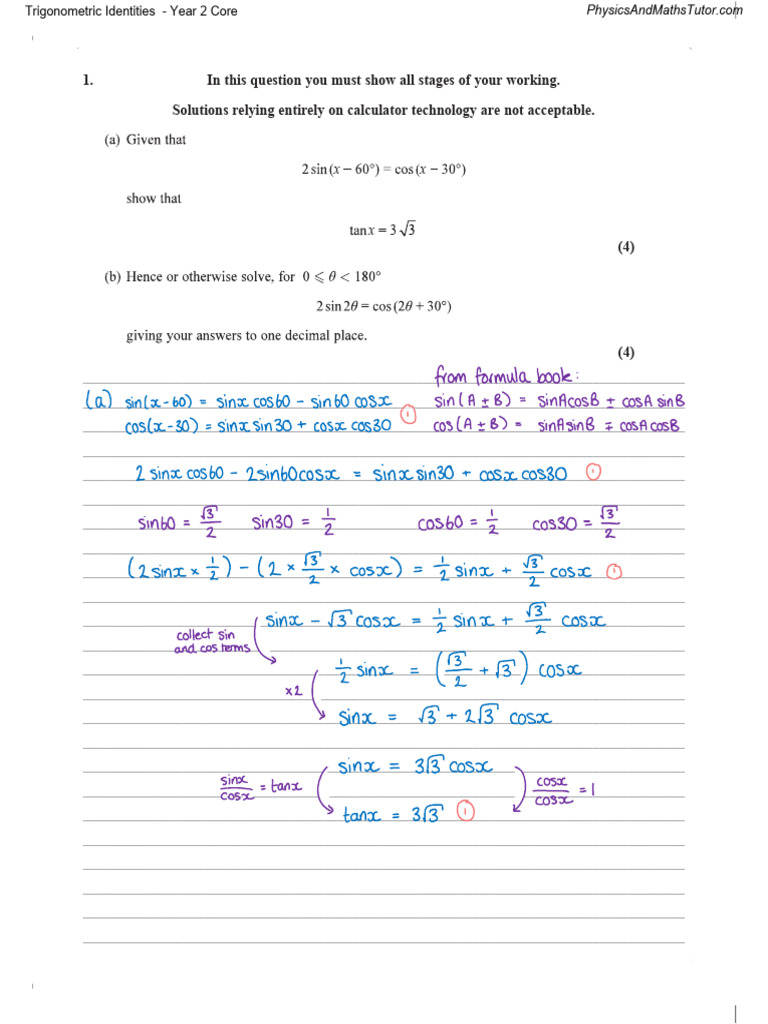 Trigonometric Identities - Year 2 Core
PhysicsAndMathsTutor.com
1. In this question you must show all stages of your working.
Solutions relying entirely on calculator technology are not acceptable.
(a) Given that
2 sin (x − 60°) = cos (x − 30°)
show that
tan x = 3 √3
(4)
(b) Hence or otherwise solve, for 0 ⩽ θ < 180°
2 sin 2θ = cos (2θ + 30°)
giving your answers to one decimal place.
(4)
from formula book:
(a) sin(x-60) = sinx cos60 - sin60 cosx
sin(A ± B) = sinAcosB ± cosA sinB
cos(x-30) = sinx sin30 + cosx cos30 ①
cos(A ± B) = sinAsinB ∓ cosAcosB
2 sinx cos60 - 2sin60cosx = sinx sin30 + cosx cos30 ①
sin60 = √3/2 sin30 = 1/2 cos60 = 1/2 cos30 = √3/2
(2sinx × 1/2) - (2 × √3/2 × cosx) = 1/2 sinx + √3/2 cosx ①
sinx - √3 cosx = 1/2 sinx + √3/2 cosx
collect sin
and cos terms
1/2 sinx = (√3/2 + √3) cosx
×2
sinx = √3 + 2√3 cosx
sinx = 3√3 cosx
sinx/cosx = tanx
cosx/cosx = 1
tanx = 3√3 ①